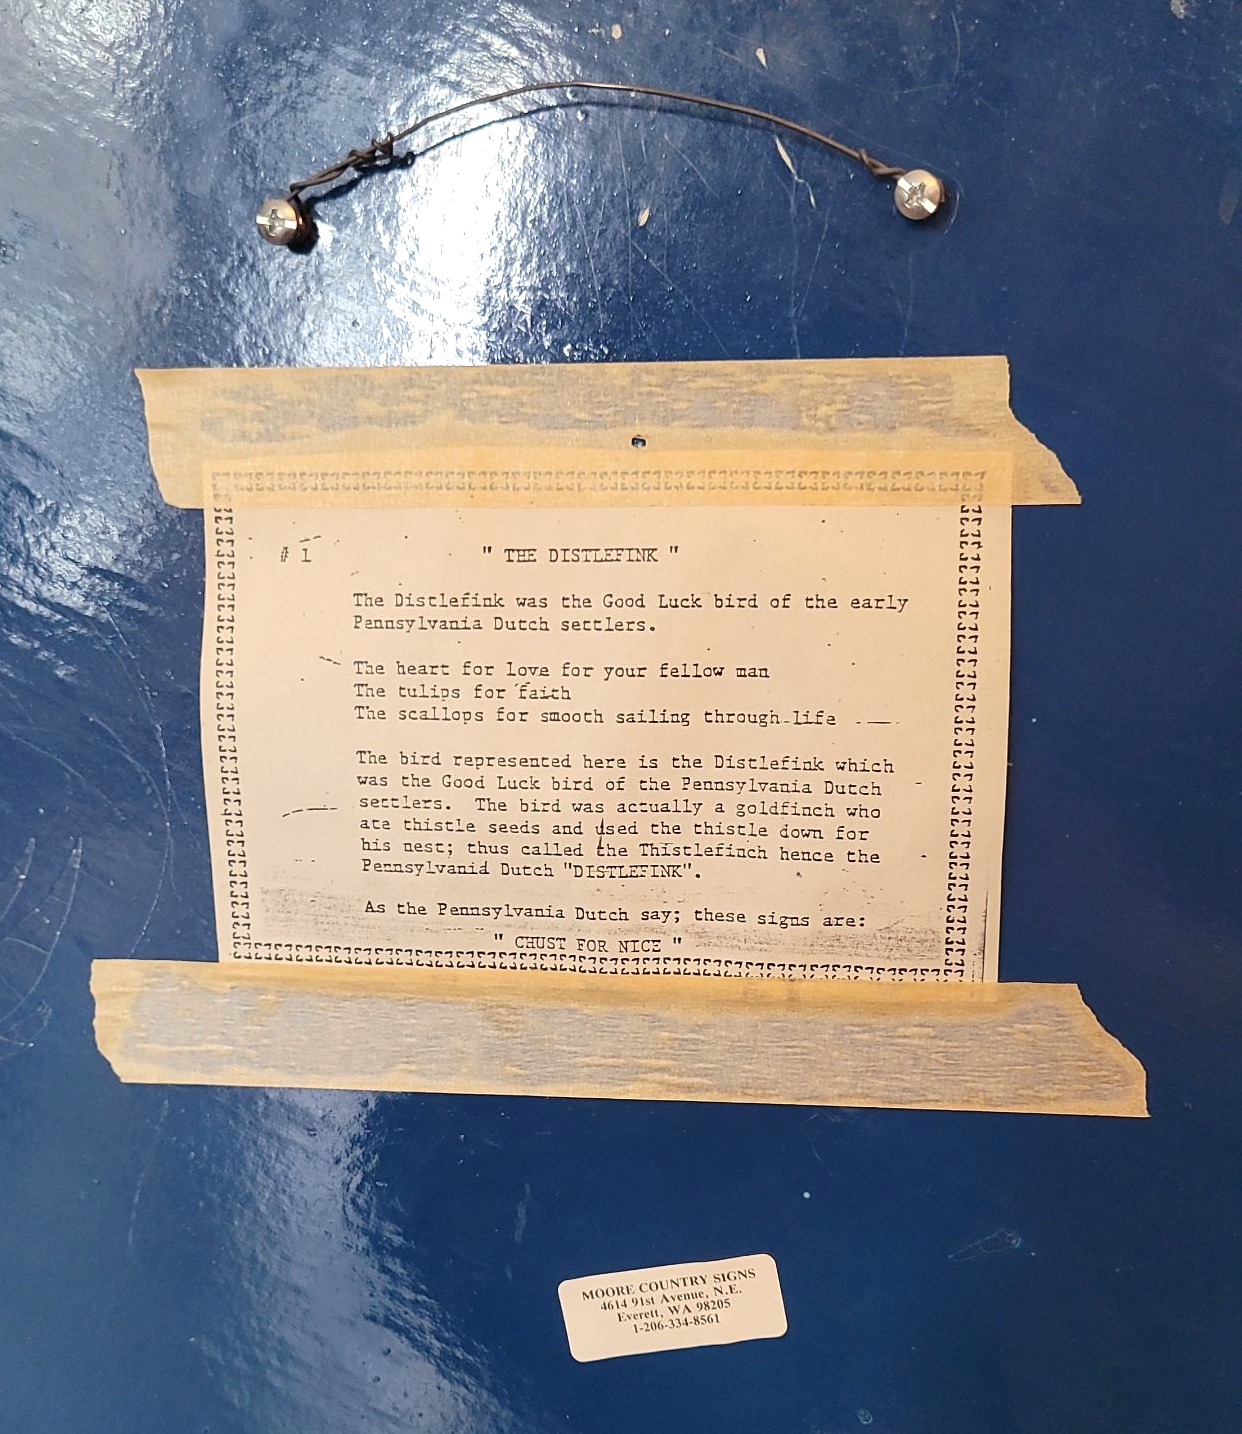 # 1 " THE DISTLEFINK "
The Distlefink was the Good Luck bird of the early
Pennsylvania Dutch settlers.
The heart for love for your fellow man
The tulips for faith
The scallops for smooth sailing through life
The bird represented here is the Distlefink which
was the Good Luck bird of the Pennsylvania Dutch
settlers. The bird was actually a goldfinch who
ate thistle seeds and used the thistle down for
his nest; thus called the Thistlefinch hence the
Pennsylvanid Dutch "DISTLEFINK".
As the Pennsylvania Dutch say; these signs are:
" CHUST FOR NICE "
MOORE COUNTRY SIGNS
4614 91st Avenue, N.E.
Everett, WA 98205
1-206-334-8561